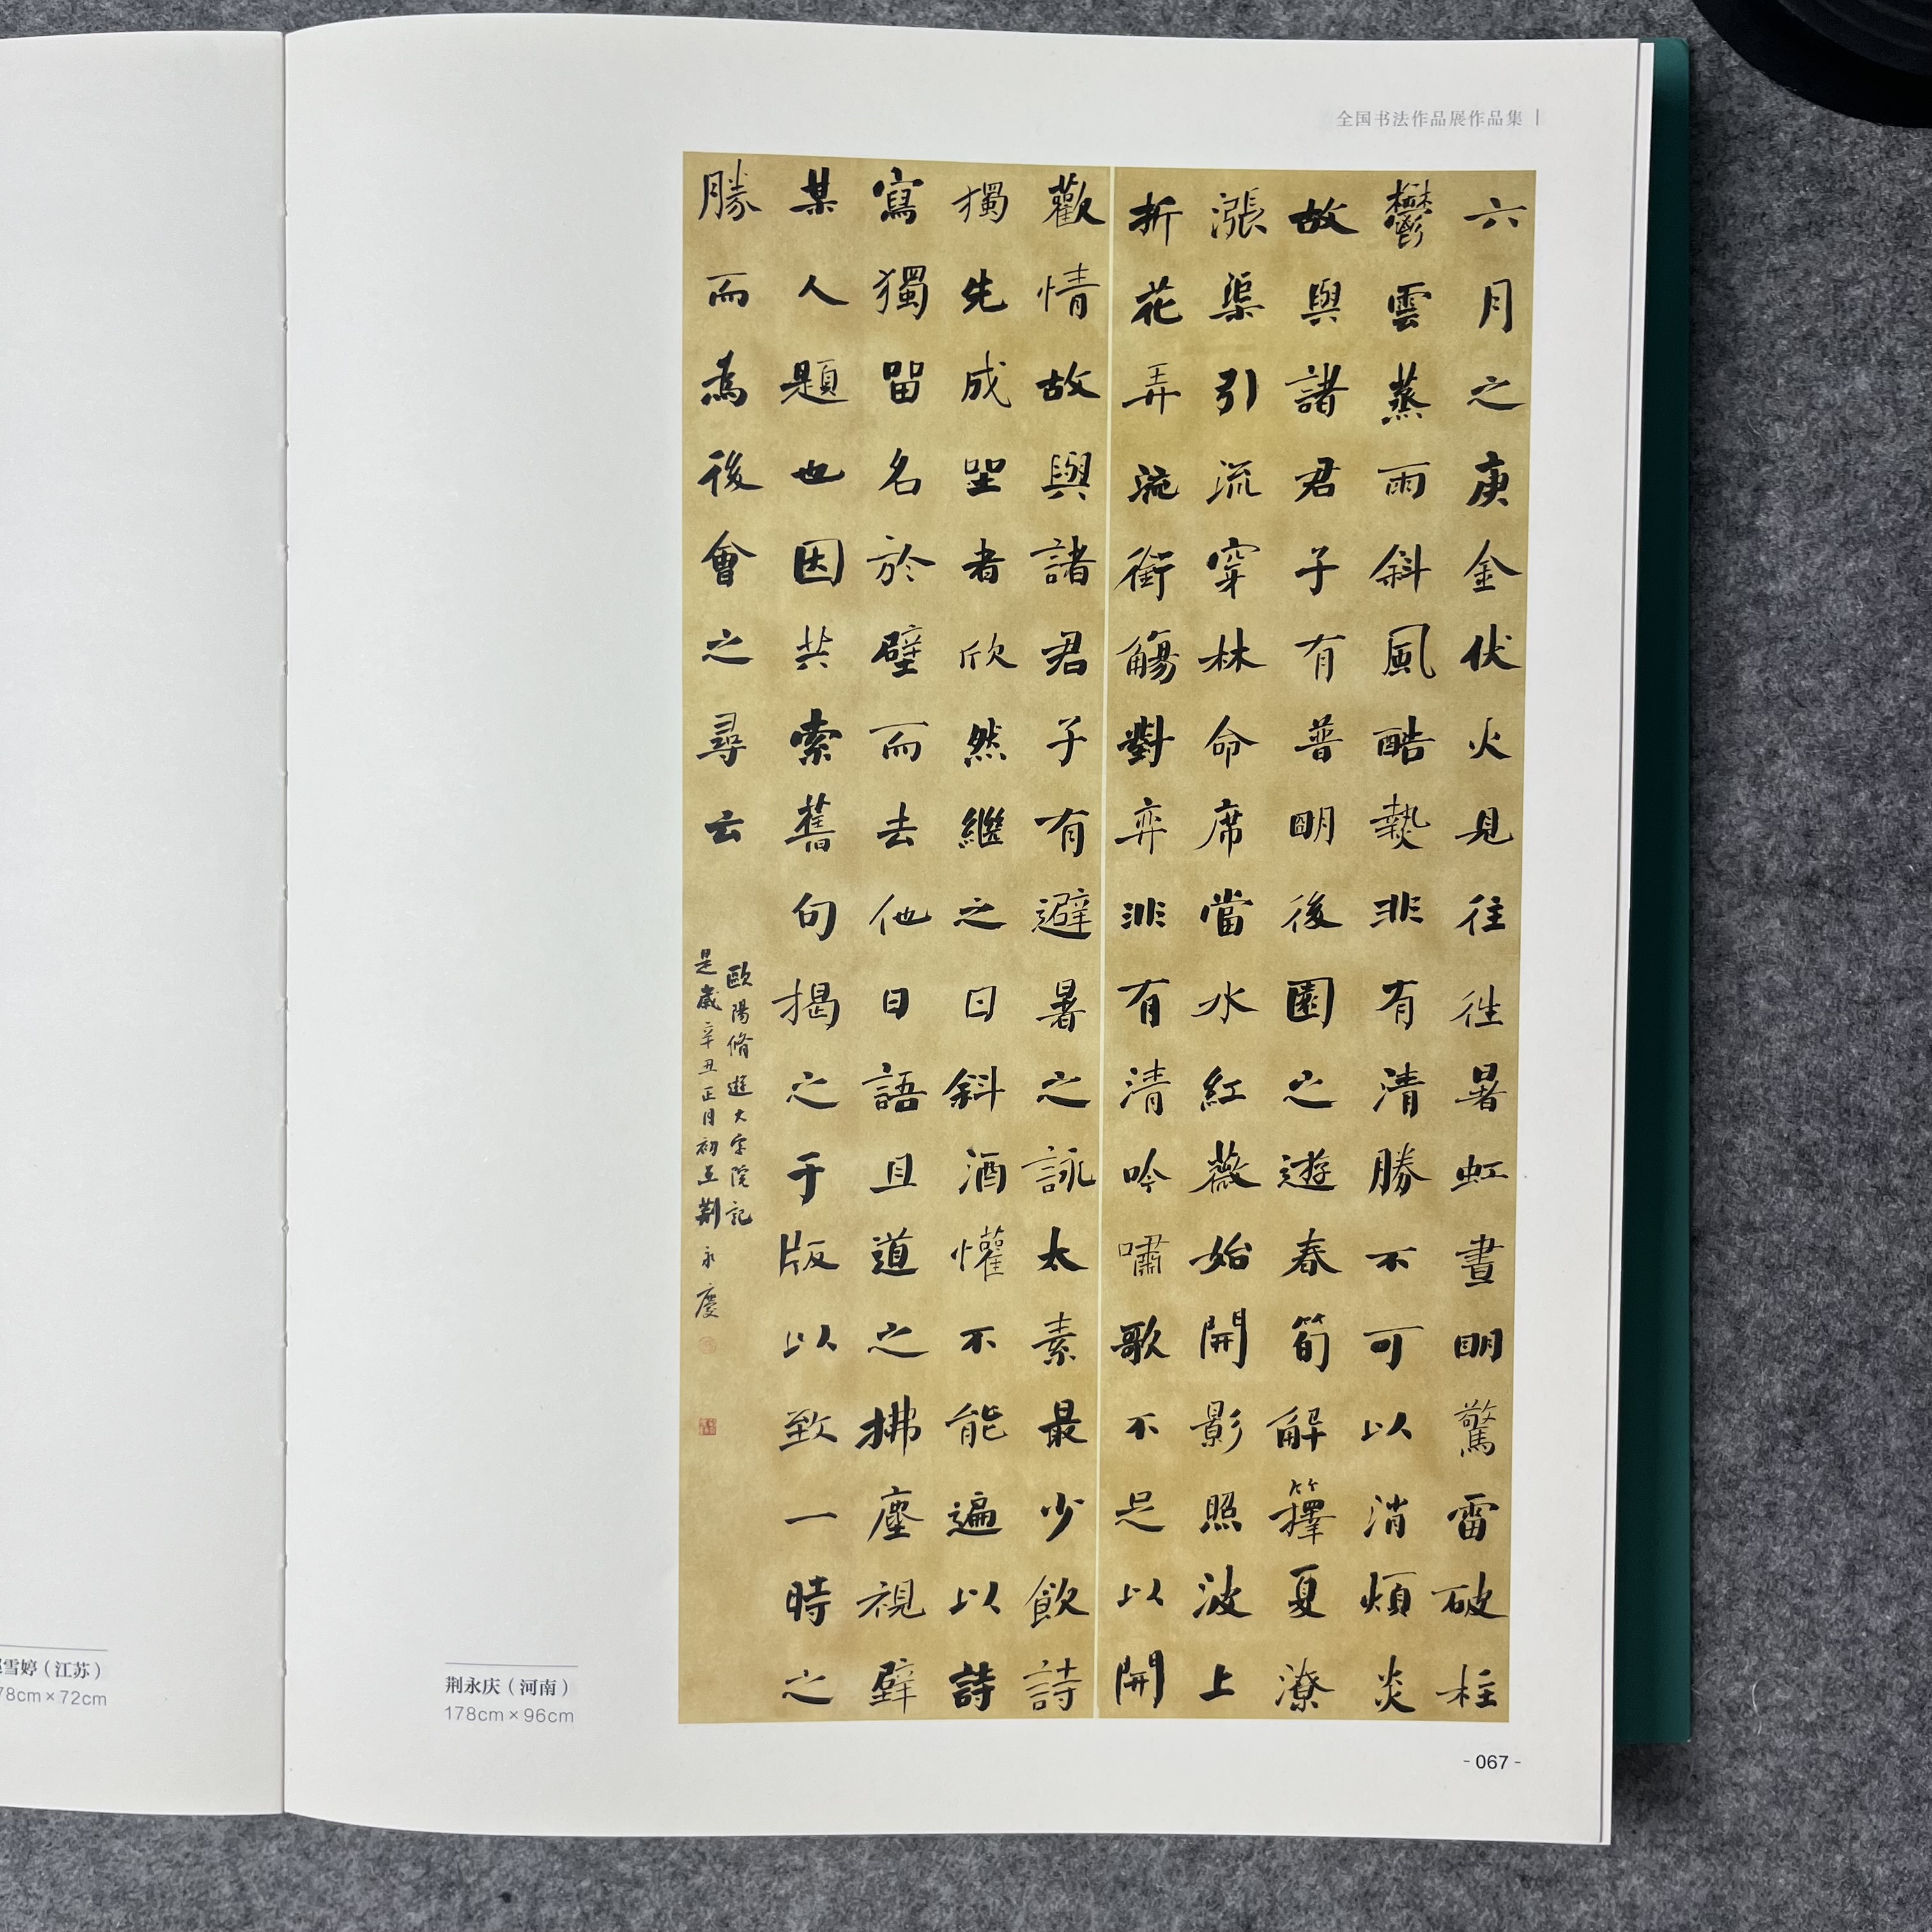 全国书法作品展作品集
六月之庚金伏火見往往暑虹晝明驚雷破柱
鬱雲蒸雨斜風酷熱非有清勝不可以消煩炎
故與諸君子有普明後園之遊春筍解籜夏潦
漲渠引流穿林命席當水紅薇始開影照波上
折花弄流銜觴對弈非有清吟嘯歌不足以開
歡情故與諸君子有避暑之詠太素最少飲詩
獨先成坐者欣然繼之日斜酒懽不能遍以詩
寫獨留名於壁而去他日語且道之拂塵視壁
某人題也因共索舊句揭之于版以致一時之
勝而為後會之尋云
歐陽脩遊大字院記
是歲辛丑正月初五荆永慶
雪婷（江苏）
78cm×72cm
荆永庆（河南）
178cm×96cm
- 067 -